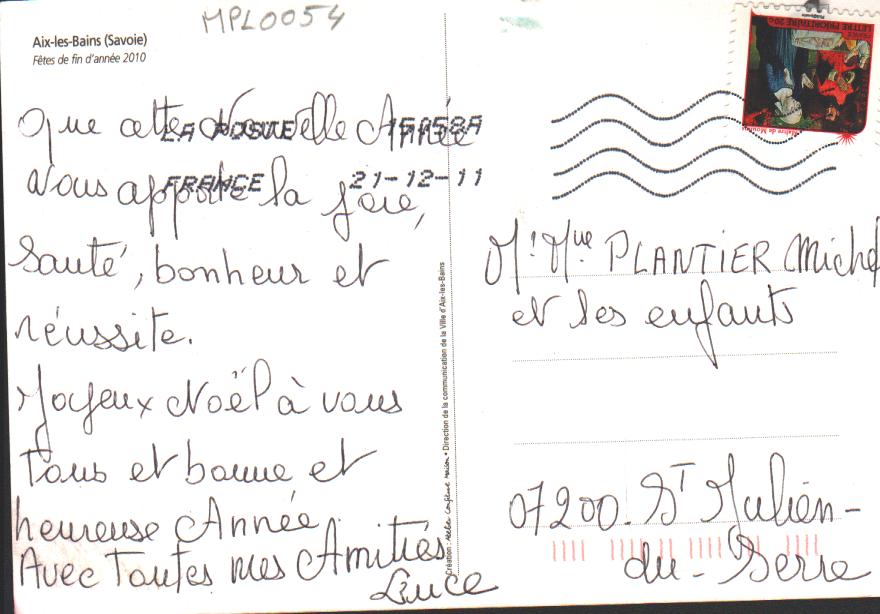 MPL0054
Aix-les-Bains (Savoie)
Fêtes de fin d'année 2010
Que cette Nouvelle Année
Vous apporte la joie,
Santé, bonheur et
réussite.
Joyeux Noël à vous
tous et bonne et
heureuse Année
Avec Toutes mes Amitiés
Luce
LA POSTE 15058A
FRANCE 21-12-11
Création : Atelier Confiture Maison • Direction de la communication de la Ville d'Aix-les-Bains
FRANCE
LETTRE PRIORITAIRE 20g
Maître de Moulins
Mr Mme PLANTIER Michel
et ses enfants
07200. ST Julien-
du-Serre